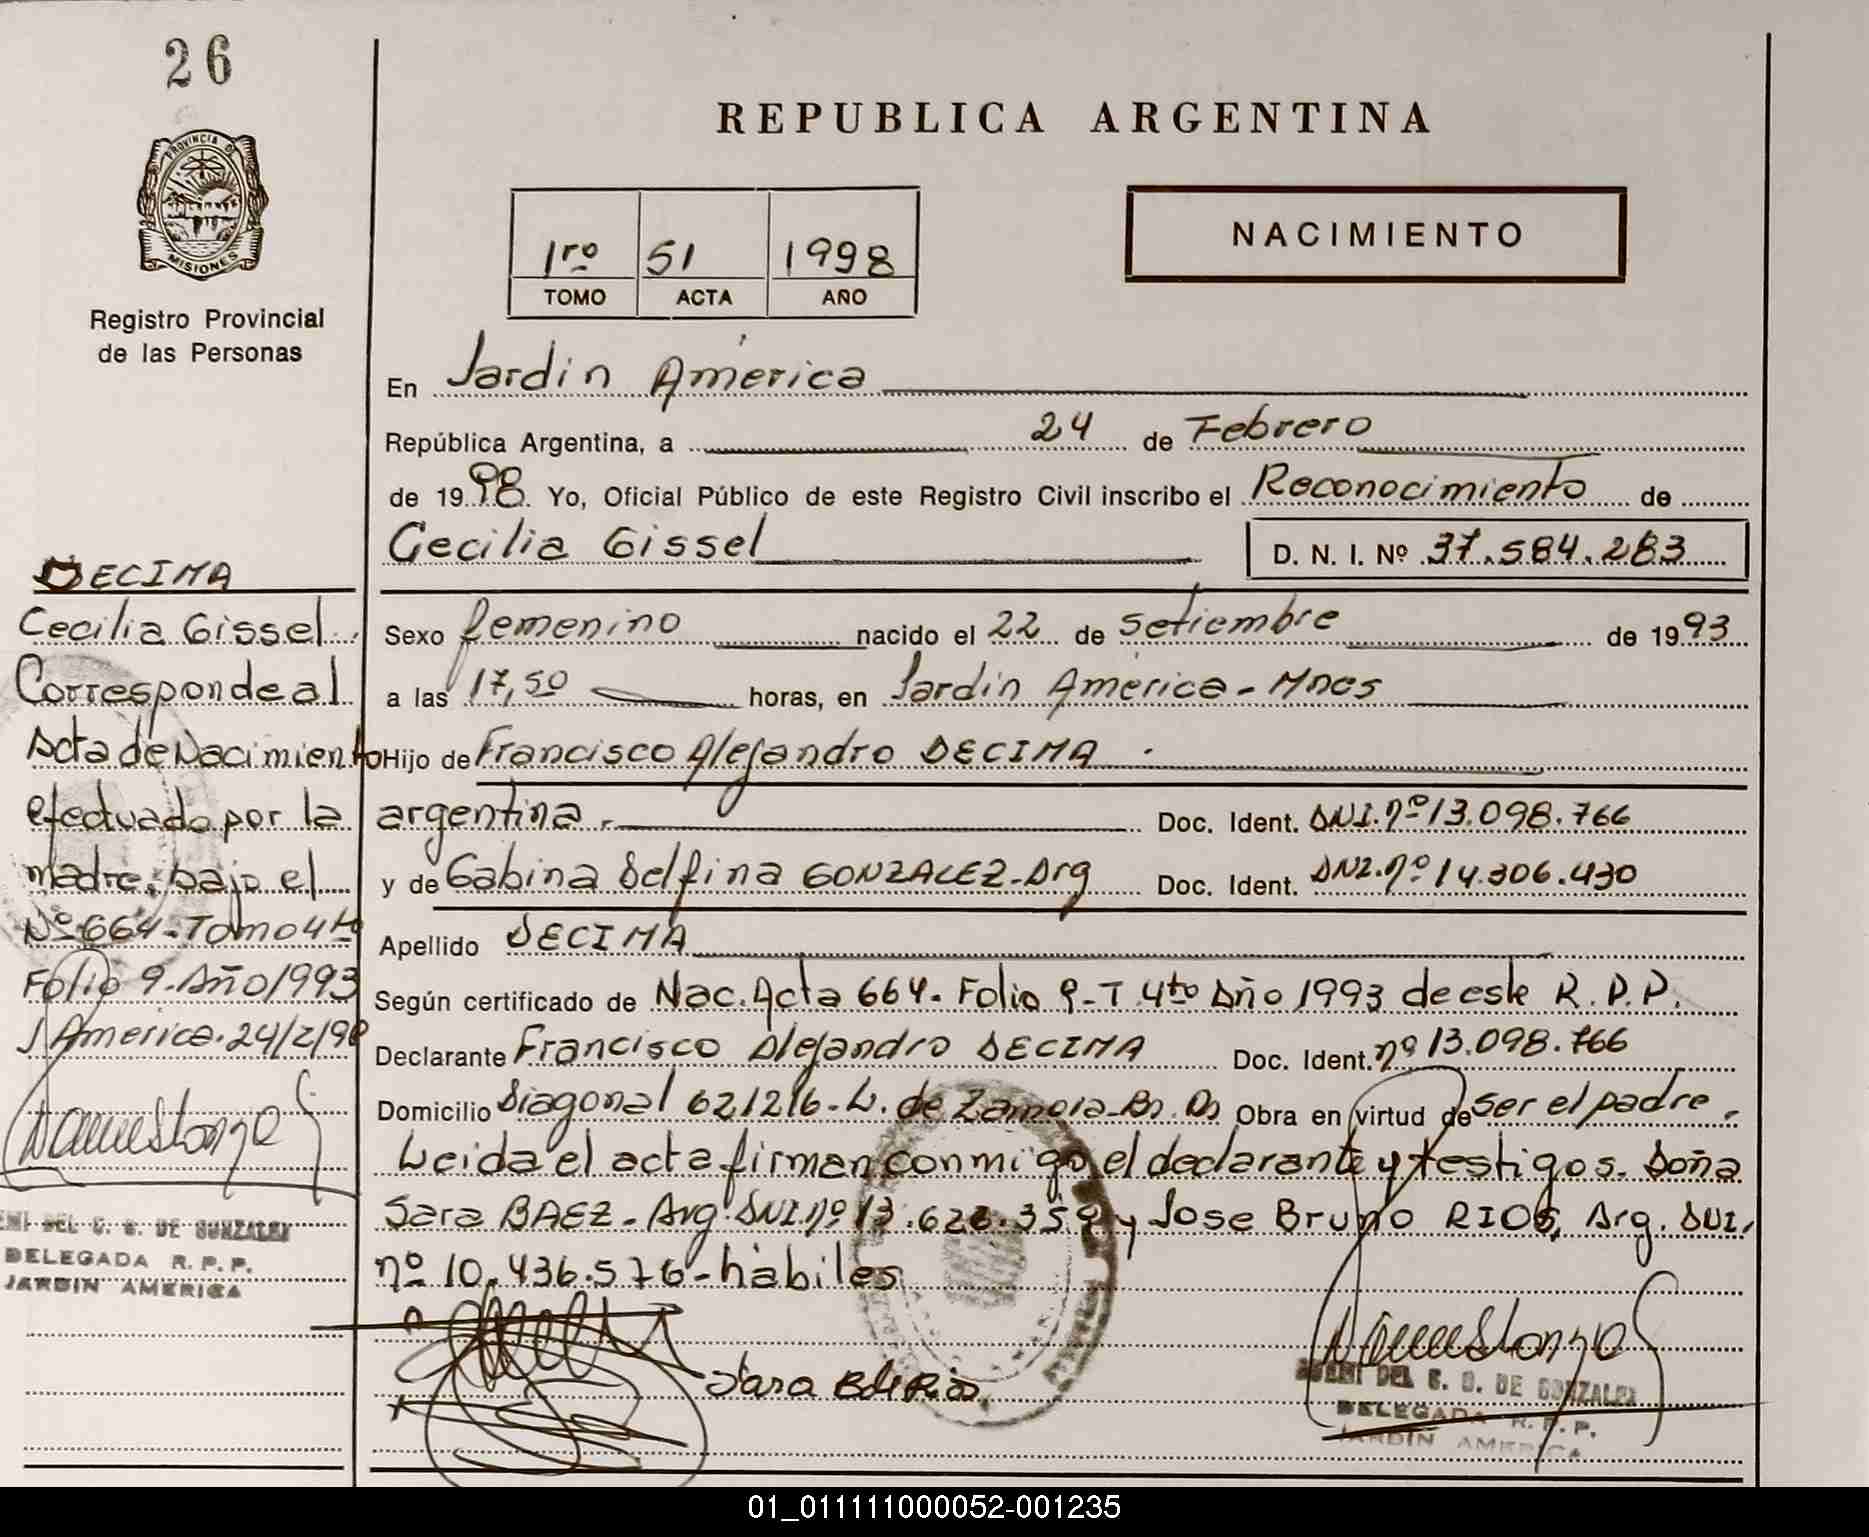 26
REPUBLICA ARGENTINA
PROVINCIA D
MISIONES
Registro Provincial
de las Personas
1ro 51 1998
TOMO ACTA AÑO
NACIMIENTO
En Jardin América
República Argentina, a 24 de Febrero
de 1998. Yo, Oficial Público de este Registro Civil inscribo el Reconocimiento de
Cecilia Gissel D. N. I. Nº 37.584.283
Sexo femenino nacido el 22 de setiembre de 1993
a las 17,50 horas, en Jardin América - Mnes
Hijo de Francisco Alejandro DECIMA
argentina. Doc. Ident. DNI. nº 13.098.766
y de Gabina Delfina GONZALEZ - Arg Doc. Ident. DNI. nº 14.306.430
Apellido DECIMA
Según certificado de Nac. Acta 664. Folio 9 - T 4to Año 1993 de este R. P. P.
Declarante Francisco Alejandro DECIMA Doc. Ident. nº 13.098.766
Domicilio Diagonal 621216 - L. de Zamora - Bs. As Obra en virtud de ser el padre.
Leida el acta firman conmigo el declarante y testigos. Doña
Sara BAEZ - Arg. DNI nº 13.623.359 y Jose Bruno RIOS, Arg. DNI.
nº 10.436.576 - hábiles
Sara
DEL C. G. DE GONZALEZ
DELEGADA R. P. P.
JARDIN AMERICA
DECIMA
Cecilia Gissel
Corresponde al
Acta de Nacimiento
efectuado por la
madre, bajo el
Nº 664 - Tomo 4to
Folio 9 - Año 1993
J América. 24/2/98
DEL C. G. DE GONZALEZ
DELEGADA R. P. P.
JARDIN AMERICA
01_011111000052-001235